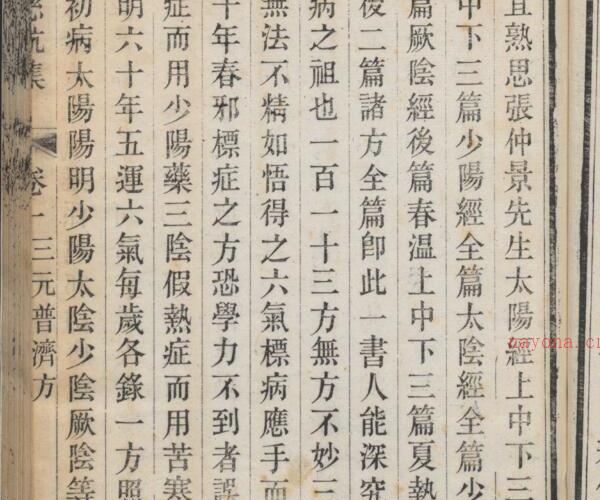 宜熟思張仲景先生太陽經上中下三
中下三篇少陽經全篇太陰經全篇少
篇厥陰經後篇春温上中下三篇夏熱
後二篇諸方全篇卽此一書人能深究
病之祖也一百一十三方無方不妙三
無法不精如悟得之六氣標病應手而
十年春邪標症之方恐學力不到者誤
症而用少陽藥三陰假熱症而用苦寒
明六十年五運六氣每歲各錄一方照
初病太陽陽明少陽太陰少陰厥陰等
集 卷一三元普濟方